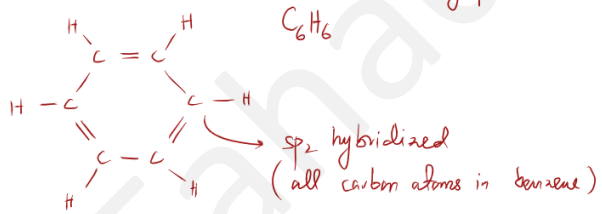 C₆H₆
H H
C = C
H - C C - H
C - C
H H
sp₂ hybridized
(all carbon atoms in benzene)